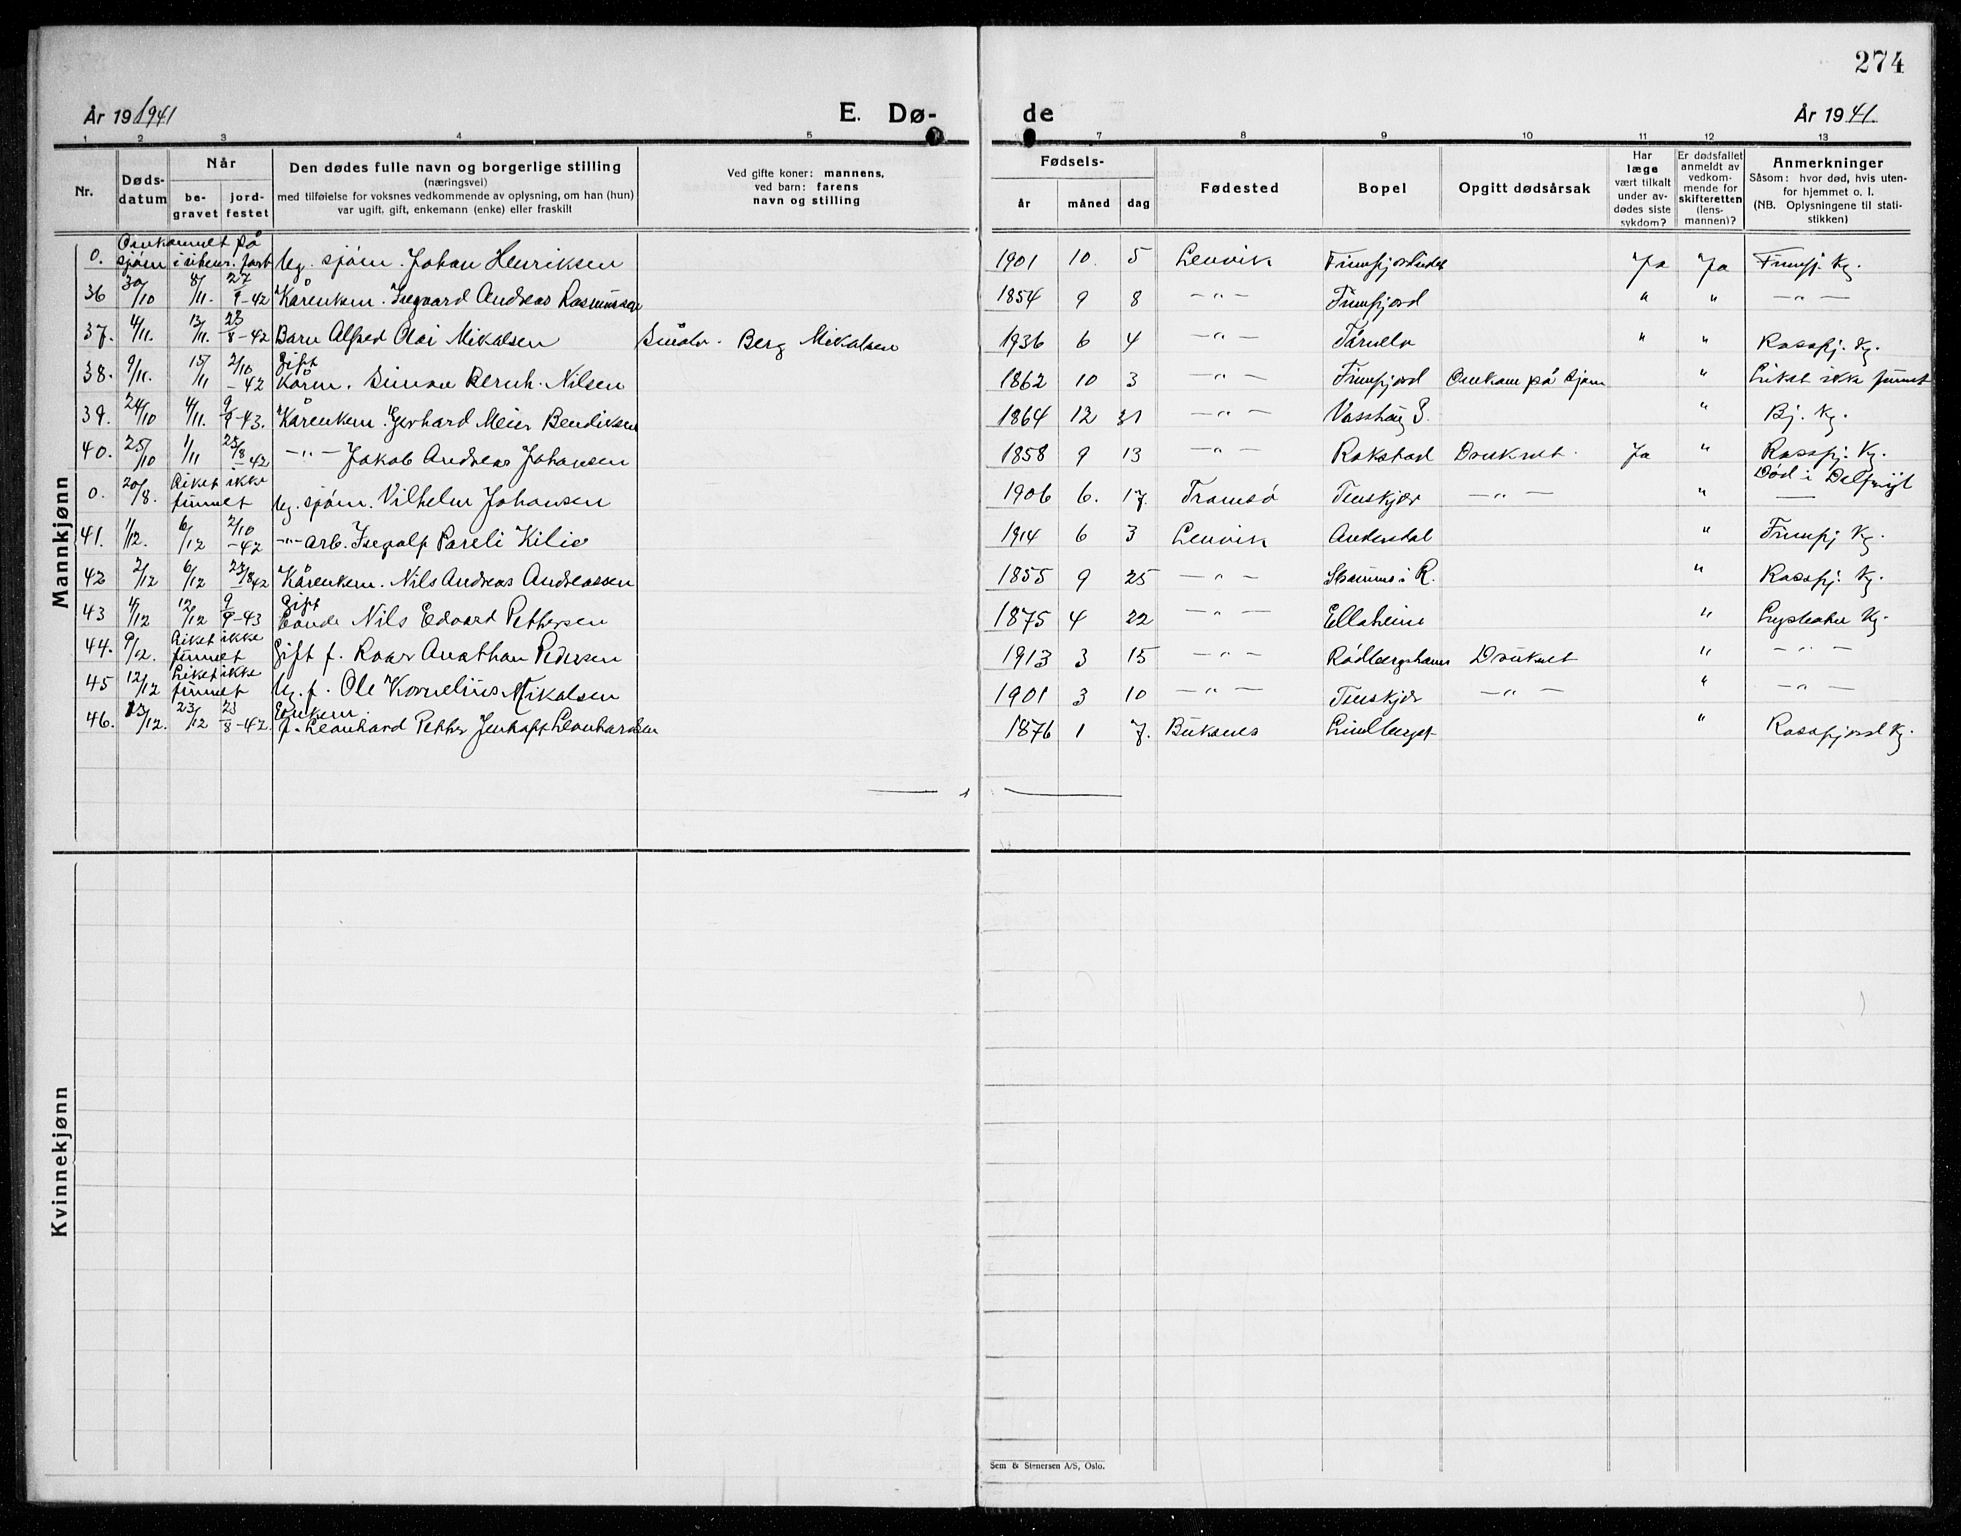 274
År 19 1941
E. Dø-
de
År 1941.
1 2 3 4 5 7 8 9 10 11 12 13
Nr.
Døds-
datum
Når
be-
gravet
jord-
festet
Den dødes fulle navn og borgerlige stilling
(næringsvei)
med tilføielse for voksnes vedkommende av oplysning, om han (hun)
var ugift, gift, enkemann (enke) eller fraskilt
Ved gifte koner: mannens,
ved barn: farens
navn og stilling
Fødsels-
år måned dag
Fødested
Bopel
Opgitt dødsårsak
Har
læge
vært tilkalt
under av-
dødes siste
sykdom?
Er dødsfallet
anmeldt av
vedkom-
mende for
skifteretten
(lens-
mannen)?
Anmerkninger
Såsom: hvor død, hvis uten-
for hjemmet o. l.
(NB. Oplysningene til stati-
stikken)
Mannkjønn
Omkommet på
0. sjøen i utenr. fart Ug. sjøm. Johan Henriksen 1901 10. 5 Lenvik Ja Ja Finnfj. Kg.
36 30/10 8/11. 27/9-42 Kårenkem. Andreas Rasmussen 1854 9 8 -"- Finnfjord " " -"-
37. 4/11. 13/11. 23/8-42 Barn Alfred Olai Mikalsen Småbr. Berg Mikalsen 1936 6 4 -"- Tårnelv " " Rossfj. Kg.
38. 9/11. 15/11 2/10-42 Gift Kårm. Simon Bernh. Nilsen 1862 10 3 -"- Finnfjord Omkom på sjøen " Liket ikke funnet
39. 24/10 4/11. 9/9-43. Kårenkem. Gerhard Meier Bendiksen 1864 12 31 -"- " Bj. Kg.
40. 25/10 1/11 25/8-42 -"- Jakob Andreas Johansen 1858 9 13 -"- Rakstad Ja " Rossfj. Kg.
0. 20/8. Liket ikke funnet Ug. sjøm. Vilhelm Johansen 1906 6. 17. Tromsø Tenskjær -"- " Død i
41. 1/12. 6/12 2/10-42 -"- arb. Pareli Kilie 1914 6 3 Lenvik Andersdal " Finnfj Kg.
42 2/12 6/12 23/8 42 Kårenkem. Nils Andreas Andreassen 1855 9 25 -"- i R. " Rossfj. Kg.
43 4/12 12/12 9/9-43 Gift Nils Edvard Pettersen 1875 4 22 -"- Ellaheim " Kg.
44. 9/12. Liket ikke funnet Gift f. Roar Anathan Pedersen 1913 3 15 -"- Rødbergshamn Druknet " -"-
45 12/12 Liket ikke funnet Ug. f. Ole Kornelius Mikalsen 1901 3 10 -"- Tenskjær -"- " -"-
46. 13/12. 23/12 23/8-42. Enkem. f. Leonhard Petter Leonhardsen 1876 1 7. Buksnes Lindberget " Rossfjord Kg.
Kvinnekjønn
Sem & Stenersen A/S, Oslo.